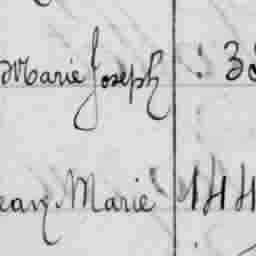 Marie Joseph : 3
ean Marie 144